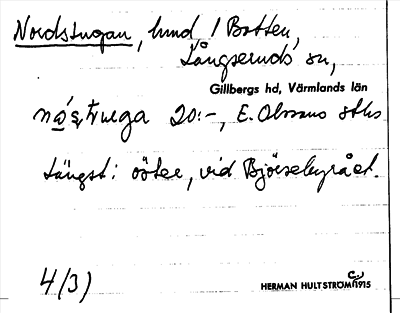 Nordstugan, hmd / Botten,
Långseruds sn,
Gillbergs hd, Värmlands län
20:-, E. Olssons
längst i öster, vid Björsebyrået.
4/3)
HERMAN HULTSTRÖM 1915